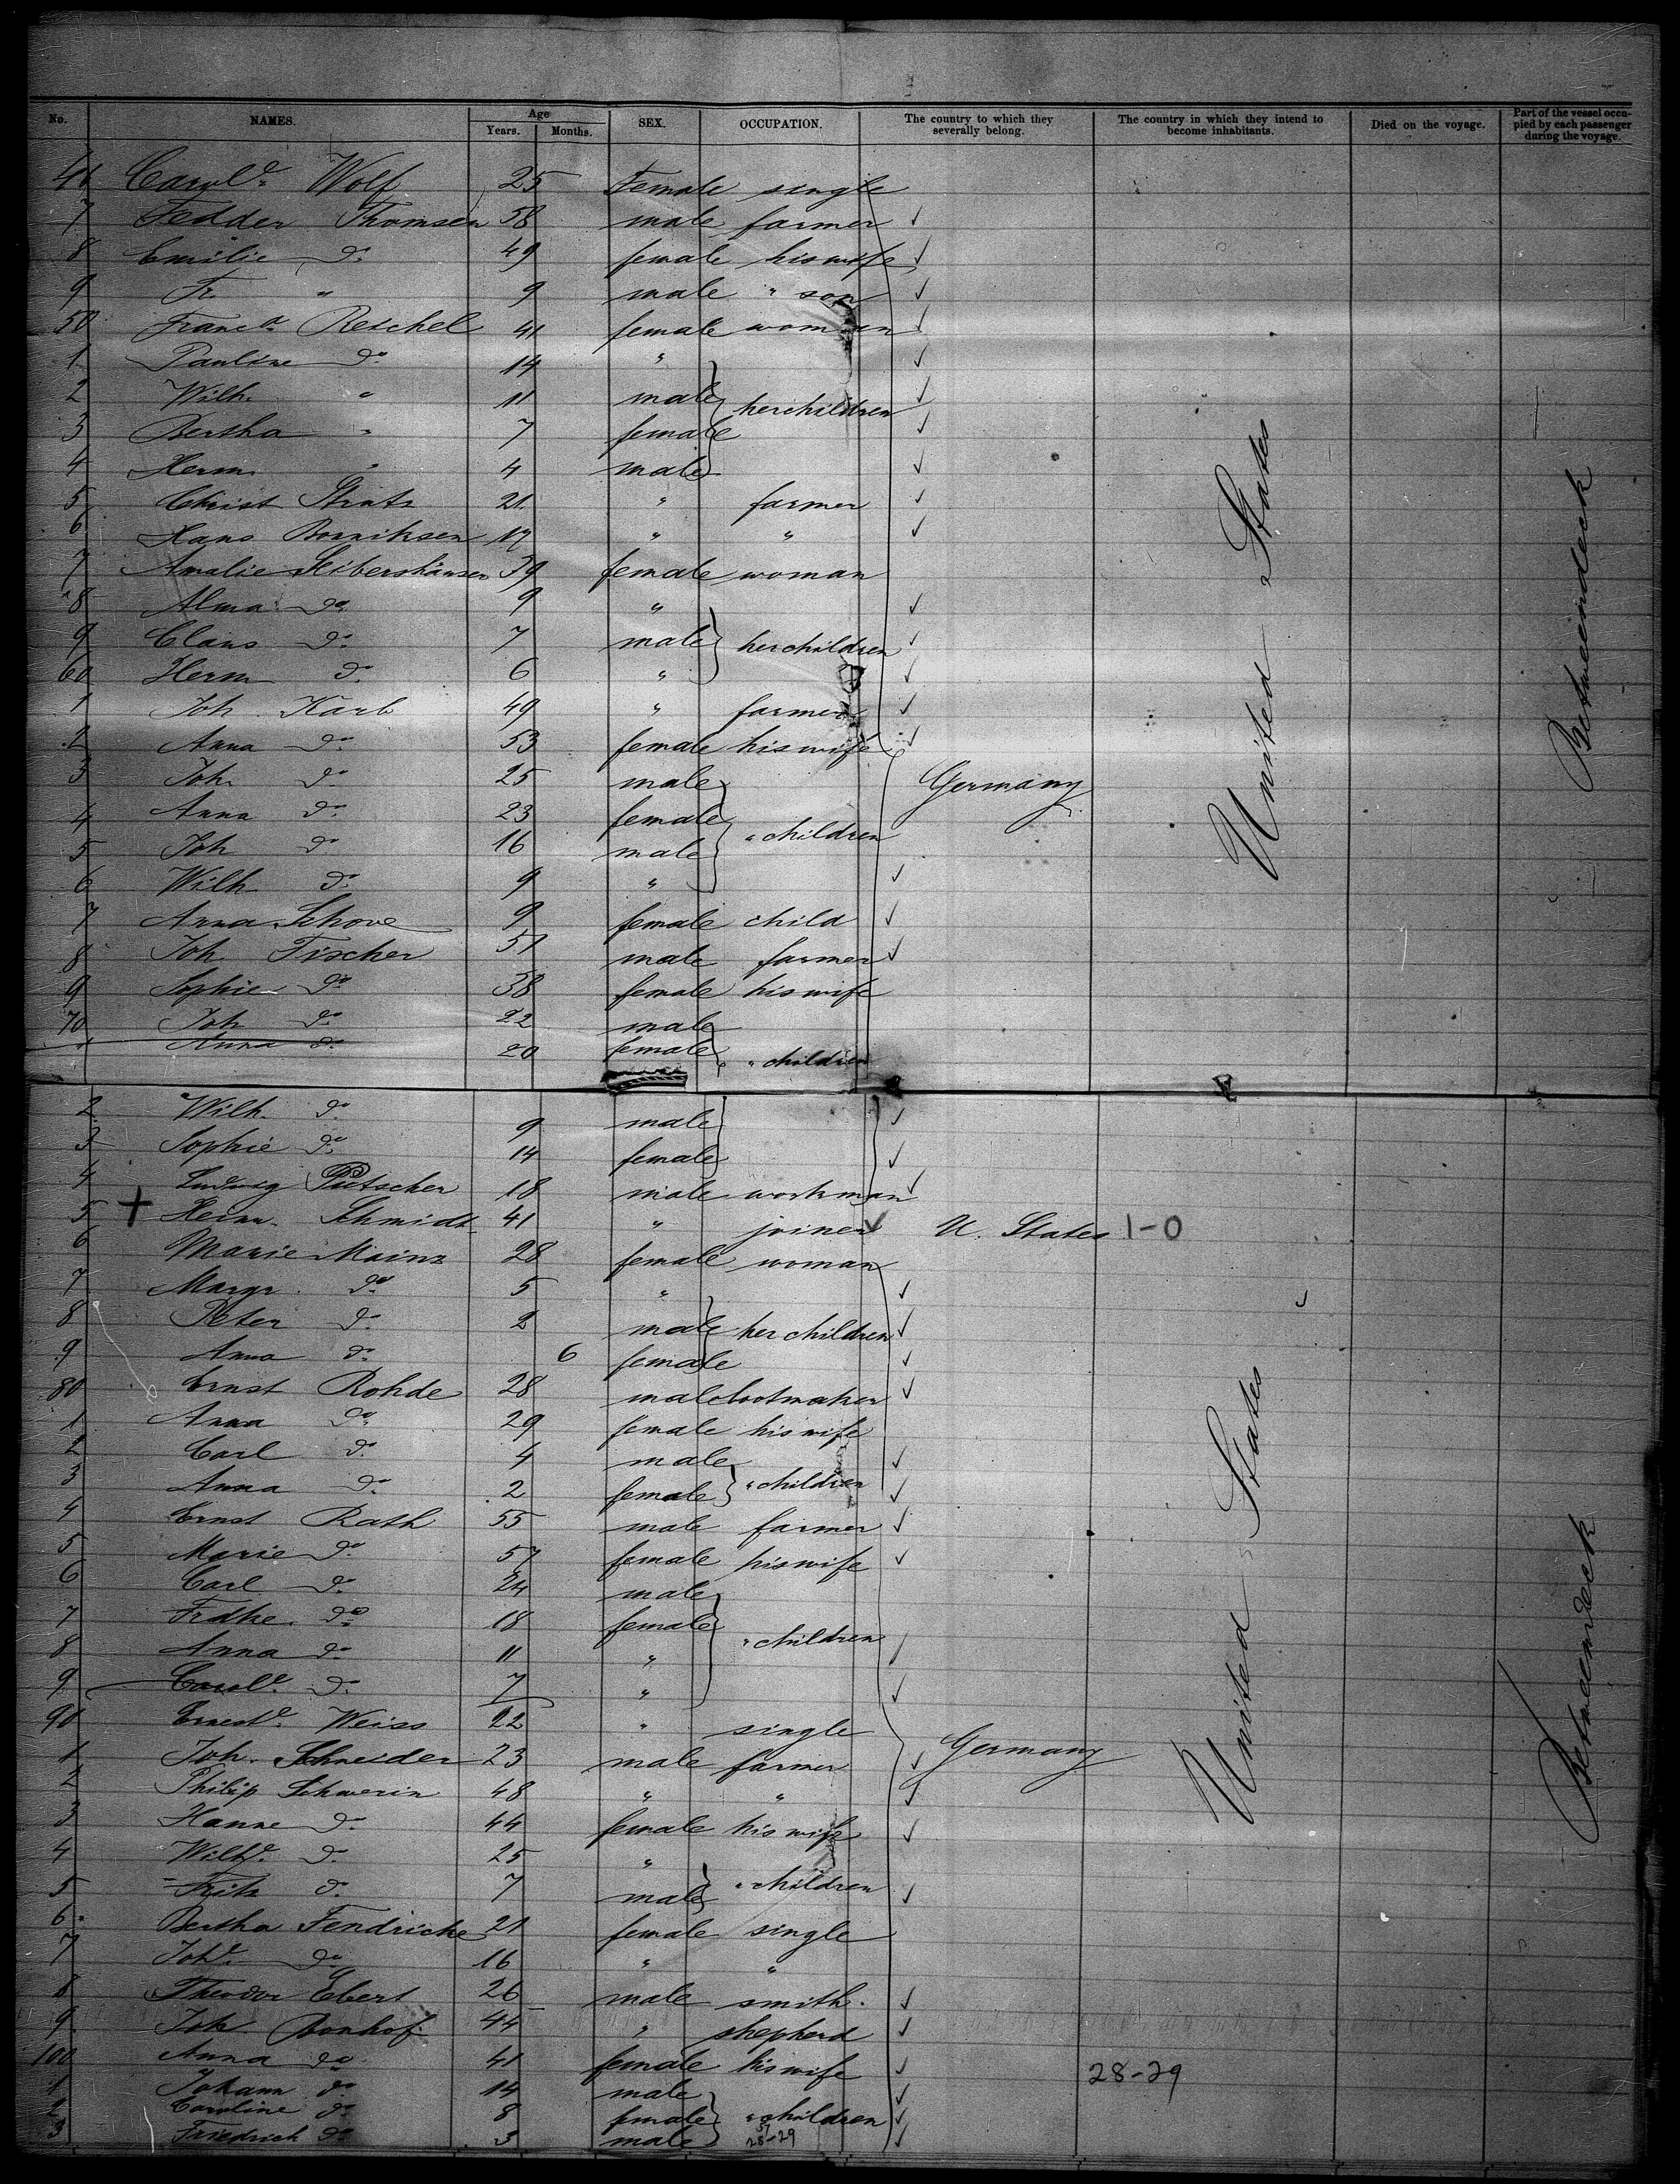 No. NAMES. Age Years. Months. SEX. OCCUPATION. The country to which they severally belong. The country in which they intend to become inhabitants. Died on the voyage. Part of the vessel occupied by each passenger during the voyage.
46 Carole. Wolf 25 Female single
7 Fedder Thomsen 58 male farmer ✓
8 Emilie do. 49 female his wife ✓
9 Fr. " 9 male " son ✓
50 Franca. Reschel 41 female woman ✓
1 Pauline do. 14 " ✓
2 Wilh. " 11 male her children ✓
3 Bertha " 7 female ✓
4 Herm. " 4 male ✓
5 Christ 21 " farmer ✓
6 Hans 17 " " ✓
7 Amalie 39 female woman
8 Alma do. 9 " ✓
9 Claus do. 7 male her children ✓
60 Herm do. 6 " ✓
1 Joh. Karb 49 " farmer ✓
2 Anna do. 53 female his wife ✓
3 Joh. do. 25 male Germany
4 Anna do. 23 female
5 Joh do. 16 male " children
6 Wilh. do. 9 " ✓
7 Anna Schove 9 female child ✓
8 Joh. Fischer 51 male farmer ✓
9 Sophie do. 38 female his wife
70 Joh do. 22 male
1 Anna do. 20 female " children
United States
Betweendeck
2 Wilh. do. 9 male ✓
3 Sophie do. 14 female ✓
4 Ludwig 18 male workman ✓
5 + Heinr. Schmidt 41 " joiner ✓ U. States 1-0
6 Marie Mainz 28 female woman
7 Margr. do. 5 " ✓
8 Peter do. 2 male her children ✓
9 Anna do. 6 female ✓
80 Ernst Rohde 28 male bootmaker ✓
1 Anna do. 29 female his wife
2 Carl do. 4 male ✓
3 Anna do. 2 female " children ✓
4 Ernst Rath 55 male farmer ✓
5 Marie do. 57 female his wife ✓
6 Carl do. 24 male
7 Frdke. do. 18 female
8 Anna do. 11 " " children ✓
9 Carole. do. 7 " ✓
90 Erneste. Weiss 22 " single
1 Joh. Schneider 23 male farmer ✓ Germany
2 Philip Schwerin 48 " " ✓
3 Hanne do. 44 female his wife ✓
4 Wilhe. do. 25 "
5 Fritz do. 7 male " children ✓
6 Bertha Fendricke 21 female single
7 Johe. do. 16 " "
8 Theodor Ebert 26 male smith. ✓
9 Joh. Bonhof 44 " shepherd ✓
100 Anna do. 41 female his wife ✓ 28-29
1 Johann do. 14 male ✓
2 Caroline do. 8 female " children ✓
3 Friedrich do. 3 male 28-29 ✓
United States
Betweendeck